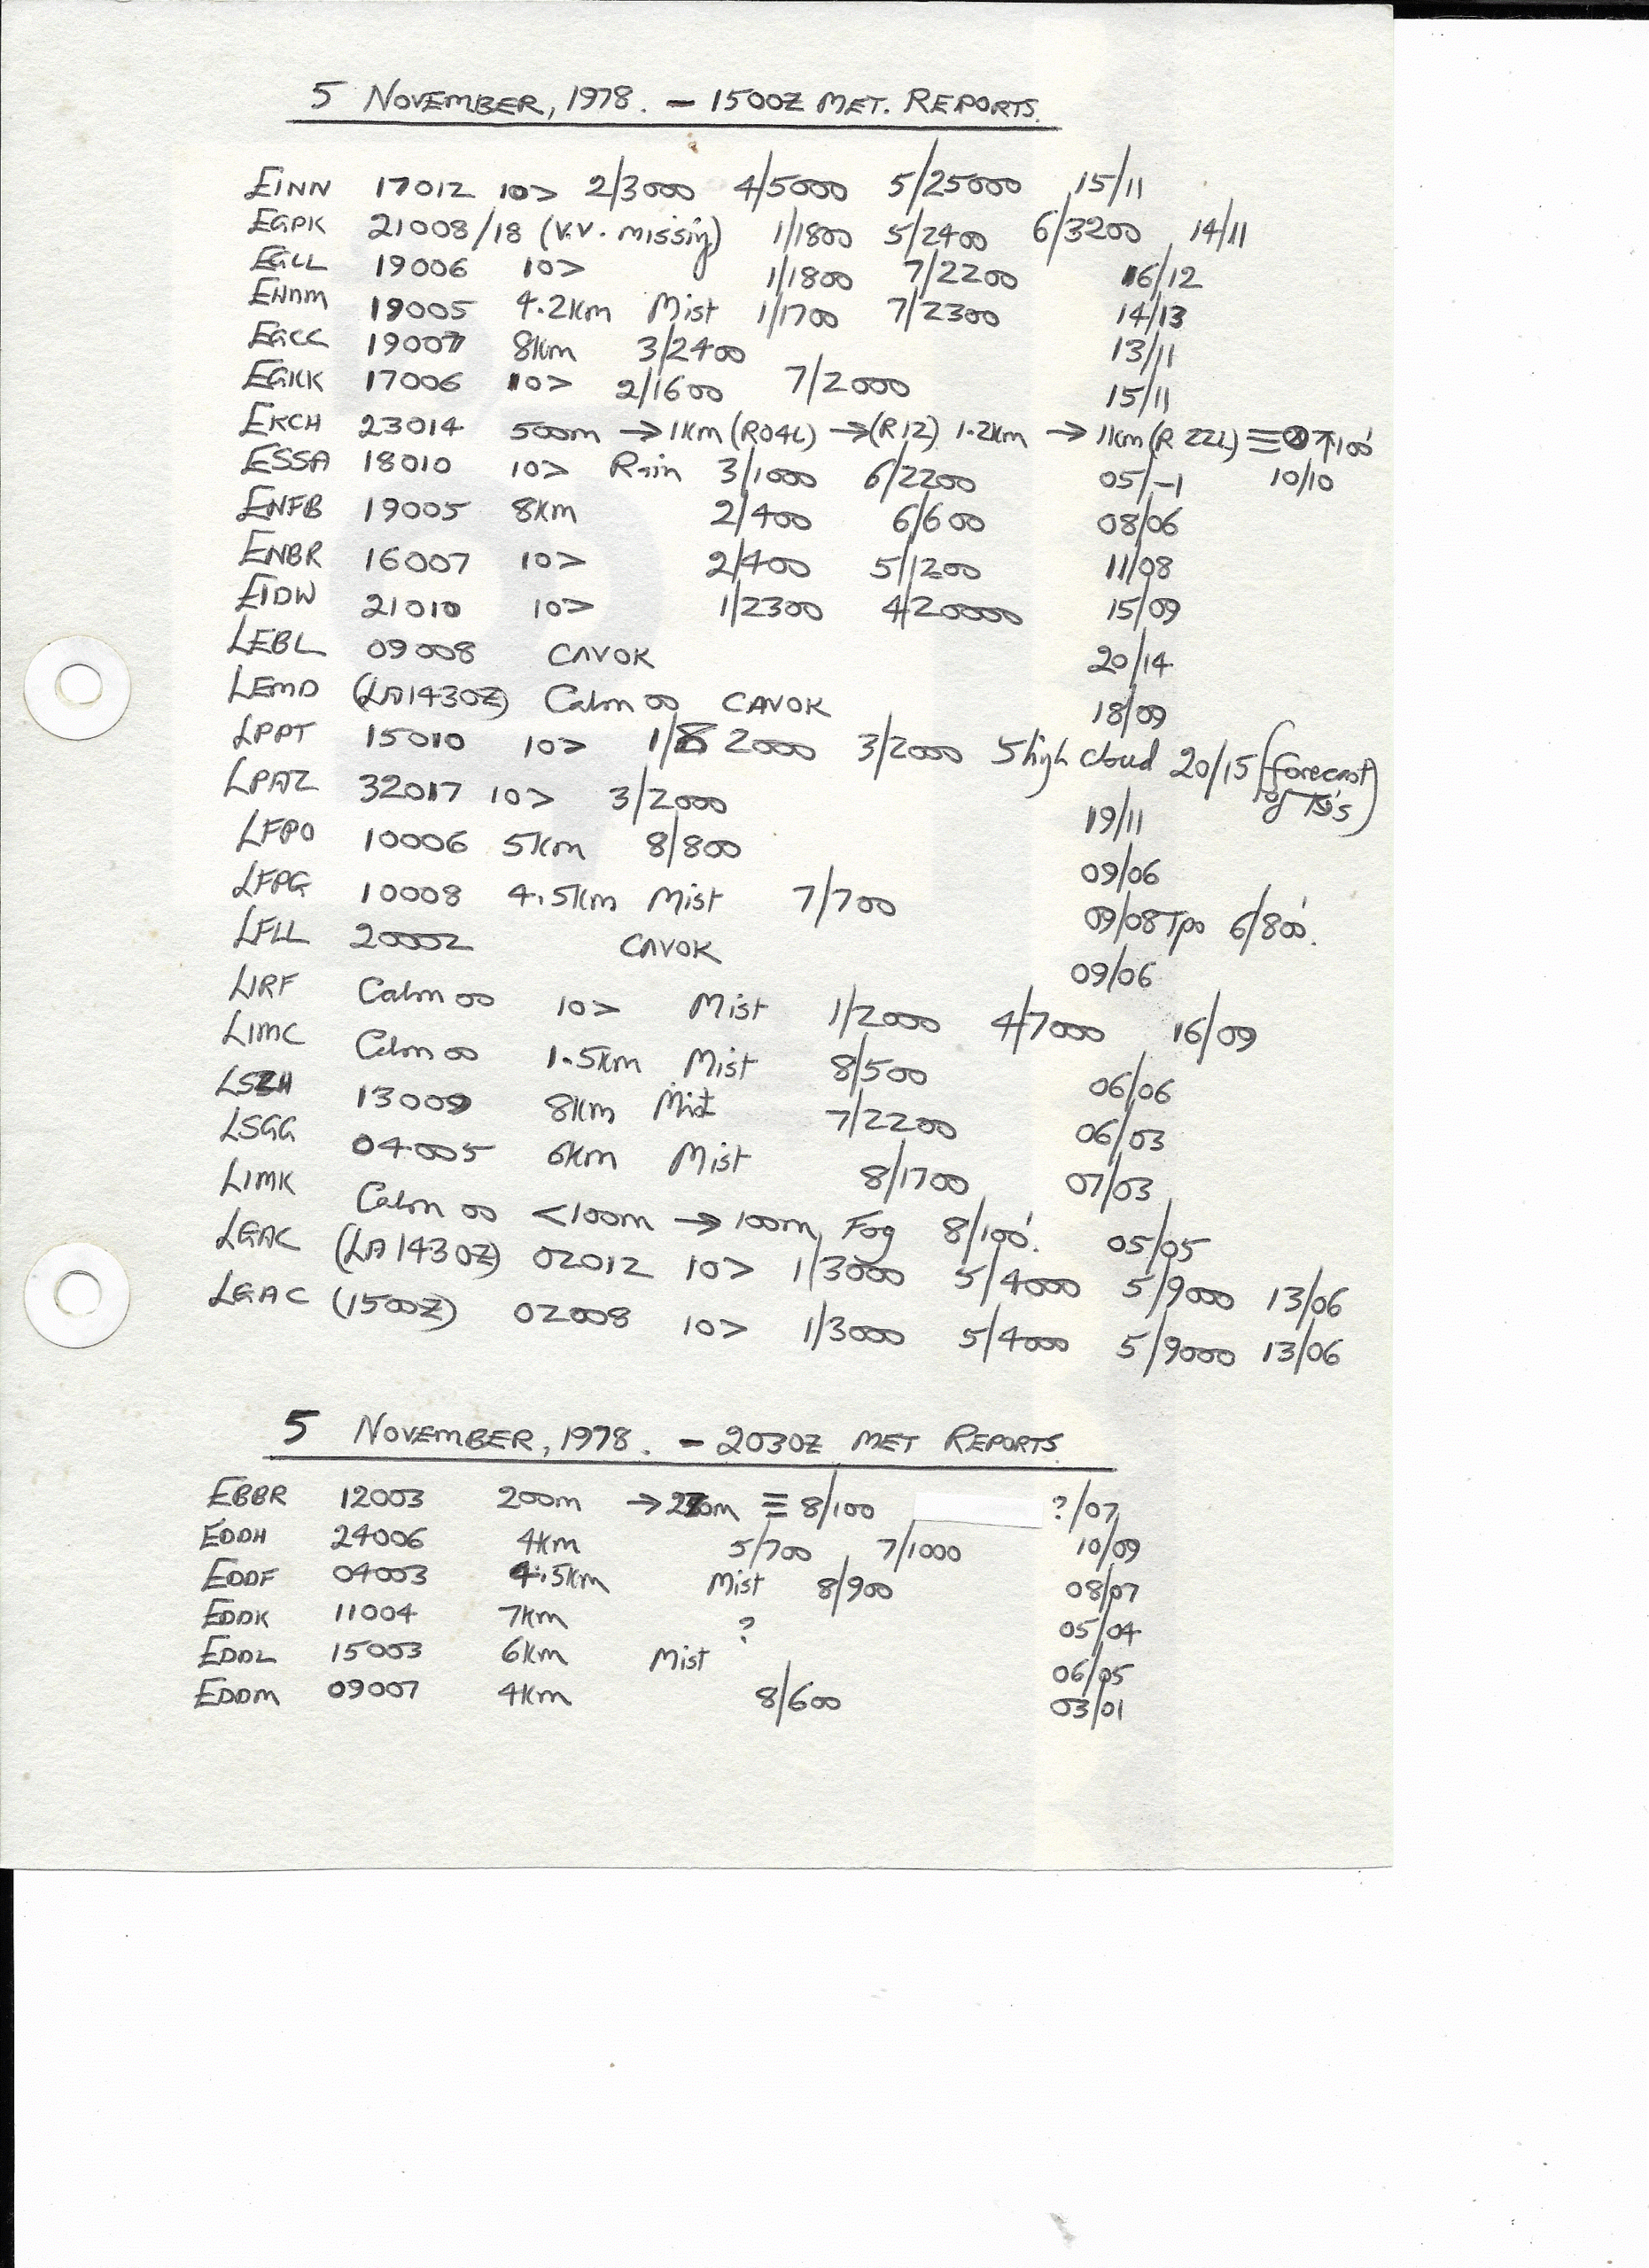 5 NOVEMBER, 1978. - 1500Z MET. REPORTS.
EINN 17012 10> 2/3000 4/5000 5/25000 15/11
EGPK 21008/18 (V.V. missing) 1/1800 5/2400 6/3200 14/11
EGLL 19006 10> 1/1800 7/2200 16/12
EHAM 19005 4.2km Mist 1/1700 7/2300 14/13
EGCC 19007 8km 3/2400 13/11
EGKK 17006 10> 2/1600 7/2000 15/11
EKCH 23014 500m →1km (R04L) →(R12) 1.2km → 1km (R 22L) ≡ ⊗↑100'
ESSA 18010 10> Rain 3/1000 6/2200 05/-1 10/10
ENFB 19005 8km 2/400 6/600 08/06
ENBR 16007 10> 2/400 5/1200 11/08
EIDW 21010 10> 1/2300 4/20000 15/09
LEBL 09008 CAVOK 20/14
LEMD (LA1430Z) Calm 00 CAVOK 18/09
LPPT 15010 10> 1/2000 3/2000 5 high cloud 20/15 (forecast
of TS's)
LPAZ 32017 10> 3/2000 19/11
LFPO 10006 5km 8/800 09/06
LFPG 10008 4.5km Mist 7/700 09/08 Tpo 6/800'.
LFLL 20002 CAVOK 09/06
LIRF Calm 00 10> Mist 1/2000 4/7000 16/09
LIMC Calm 00 1.5km Mist 8/500 06/06
LSZH 13009 8km Mist 7/2200 06/03
LSGG 04005 6km Mist 8/1700 07/03
LIMK Calm 00 <100m → 100m, Fog 8/100'. 05/05
LGAC (LA1430Z) 02012 10> 1/3000 5/4000 5/9000 13/06
LGAC (1500Z) 02008 10> 1/3000 5/4000 5/9000 13/06
5 NOVEMBER, 1978. - 2030Z MET REPORTS.
EBBR 12003 200m → ≡ 8/100 ?/07
EDDH 24006 4km 5/700 7/1000 10/09
EDDF 04003 4.5km Mist 8/900 08/07
EDDK 11004 7km ? 05/04
EDDL 15003 6km Mist 06/05
EDDM 09007 4km 8/600 03/01